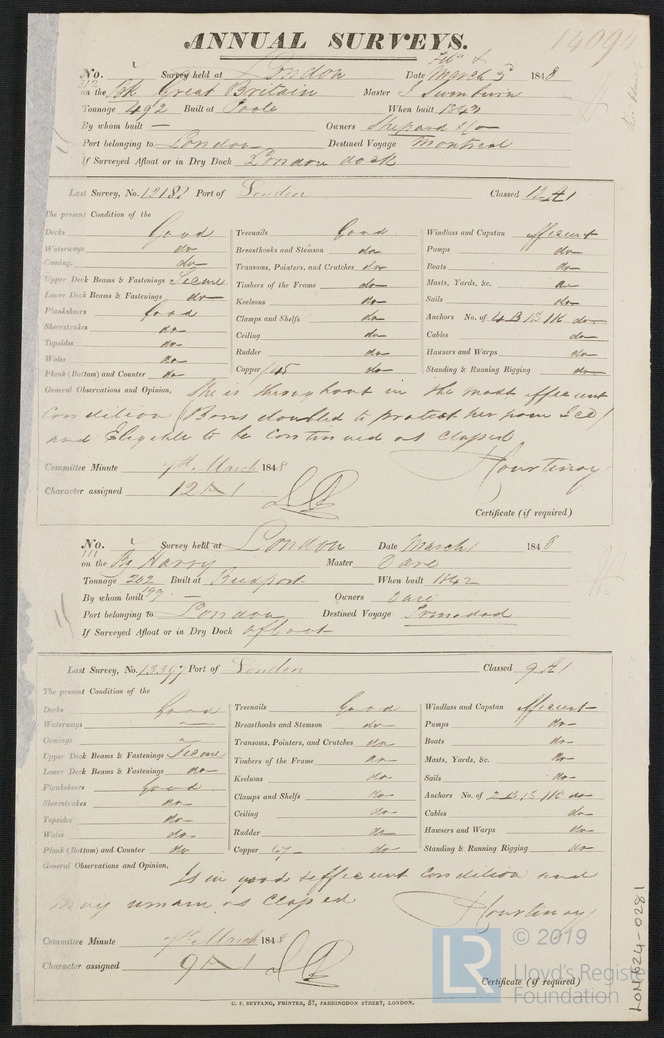 ANNUAL SURVEYS.
14094
No. Survey held at London Date March 3 1848
on the Bk Great Britain Master J Swinburn
Tonnage 492 Built at Poole When built
By whom built — Owners Shepard & Co
Port belonging to London Destined Voyage Montreal
If Surveyed Afloat or in Dry Dock London dock
Last Survey, No. 13187 Port of London Classed 12 A1
The present Condition of the
Decks Good Treenails Good Windlass and Capstan efficient
Waterways do Breasthooks and Stemson do Pumps do
Comings do Transoms, Pointers, and Crutches do Boats do
Upper Deck Beams & Fastenings Secure Timbers of the Frame do Masts, Yards, &c. do
Lower Deck Beams & Fastenings do Keelsons do Sails do
Planksheers Good Clamps and Shelfs do Anchors No. of 4 B 1 S 1 K do
Sheerstrakes do Ceiling do Cables do
Topsides do Rudder do Hawsers and Warps do
Wales do Copper do Standing & Running Rigging do
Plank (Bottom) and Counter do
General Observations and Opinion, She is throughout in the most efficient
condition (Bows doubled to protect her from Ice)
and Eligible to be continued as Classed
Courtenay
Committee Minute 7th March 1848
Character assigned 12 A 1
Certificate (if required)
No. Survey held at London Date March 1848
111
on the Bg Harry Master Dare
Tonnage 202 Built at When built 1842
197
By whom built — Owners Dare
Port belonging to London Destined Voyage Trinidad
If Surveyed Afloat or in Dry Dock afloat
Last Survey, No. 13397 Port of London Classed 9 A1
The present Condition of the
Decks Good Treenails Good Windlass and Capstan efficient
Waterways — Breasthooks and Stemson do Pumps do
Comings — Transoms, Pointers, and Crutches do Boats do
Upper Deck Beams & Fastenings Secure Timbers of the Frame do Masts, Yards, &c. do
Lower Deck Beams & Fastenings do Keelsons do Sails do
Planksheers Good Clamps and Shelfs do Anchors No. of 2 B 1 S 1 K do
Sheerstrakes do Ceiling do Cables do
Topsides do Rudder do Hawsers and Warps do
Wales do Copper do Standing & Running Rigging do
Plank (Bottom) and Counter do
General Observations and Opinion, Is in good & efficient condition and
may remain as Classed
Courtenay
Committee Minute 7th March 1848
Character assigned 9 A 1
Certificate (if required)
C. F. SEYFANG, PRINTER, 57, FARRINGDON STREET, LONDON.
LON624-0281
LR © 2019
Lloyd's Register
Foundation